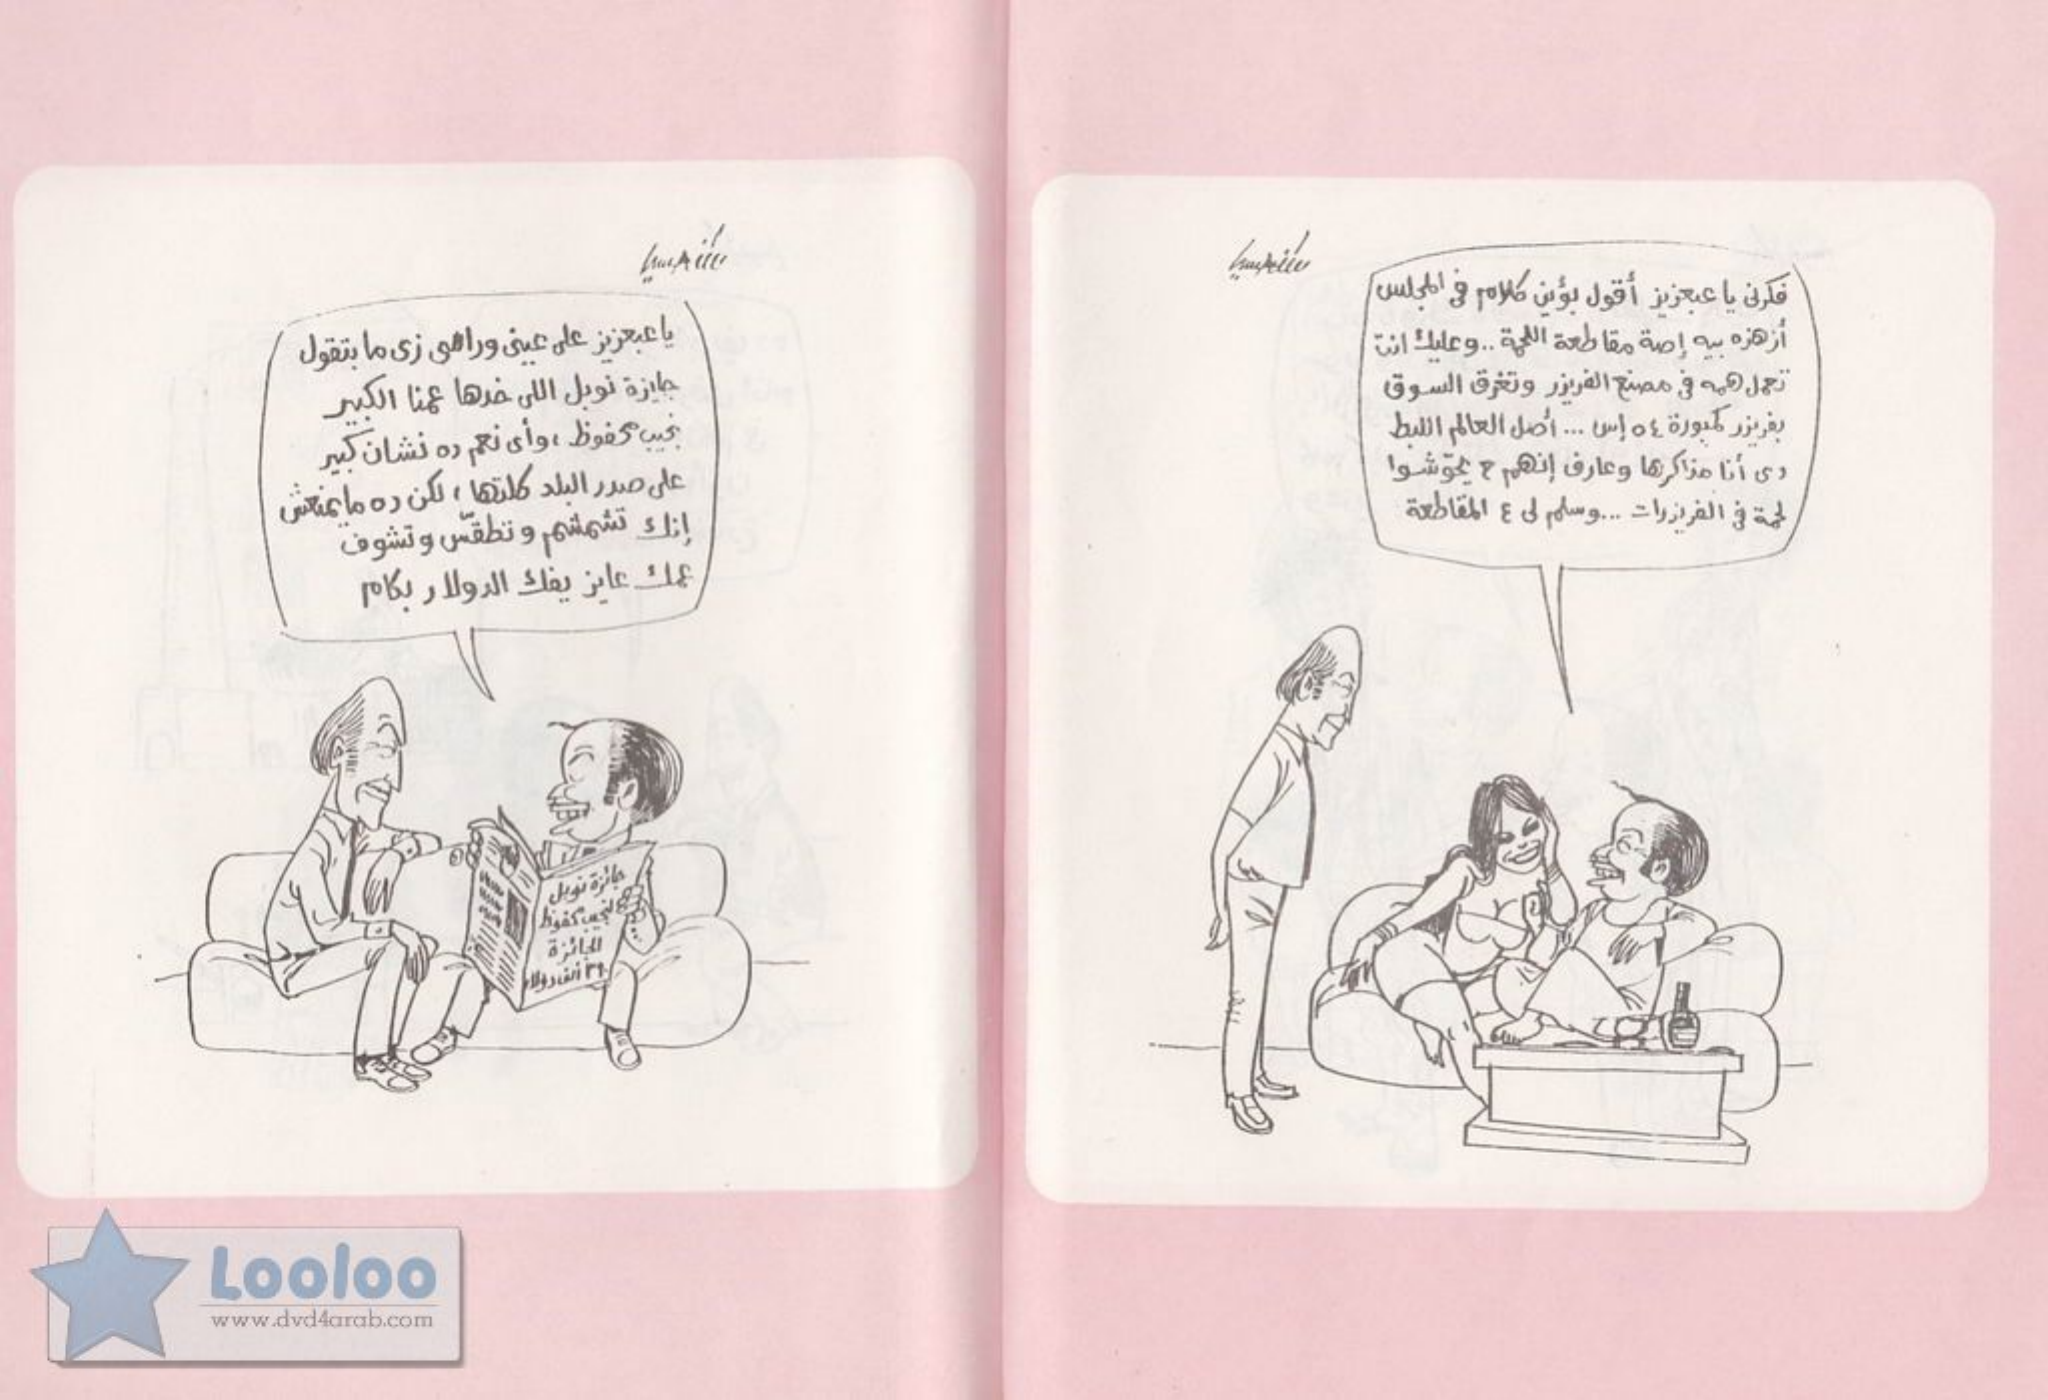 فكرنى يا عبعزيز أقول بؤين كلام فى المجلس
أزهزه بيه إصة مقاطعة اللحمة .. وعليك انت
تعمل همه فى مصنع الفريزر وتغرق السوق
بفريزر كمبورة ٥٤ إس ... أصل العالم اللبط
دى أنا مذاكرها وعارف إنهم ح يحوّشوا
لحمة فى الفريزرات ... وسلم لى ع المقاطعة
يا عبعزيز على عينى وراسى زى ما بتقول
جايزة نوبل اللى خدها عمنا الكبير
نجيب محفوظ ، وأى نعم ده نشان كبير
على صدر البلد كلتها ، لكن ده ما يمنعش
إنك تشمشم وتطقّس وتشوف
عمك عايز يفك الدولار بكام
جائزة نوبل
لنجيب محفوظ
الجائزة
ألف دولار
Looloo
www.dvd4arab.com